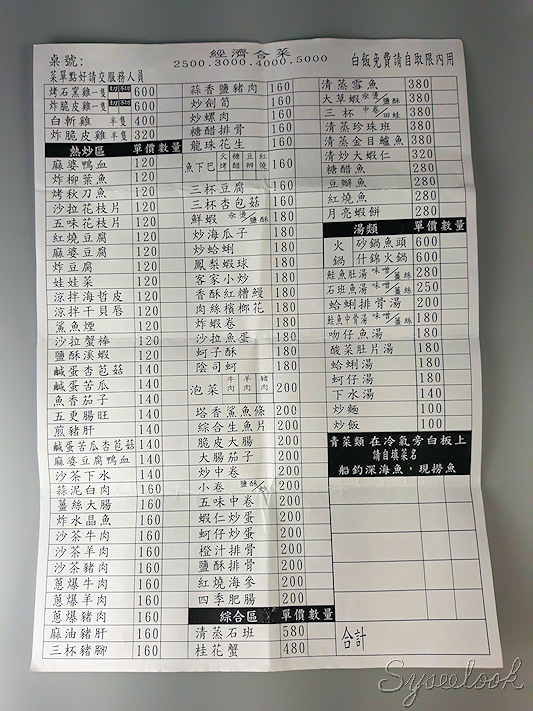 經濟合菜
桌號: 2500.3000.4000.5000 白飯免費請自取限內用
菜單點好請交服務人員
烤石窯雞一隻 切 不切 600
炸脆皮雞一隻 切 不切 600
白斬雞 半隻 400
炸脆皮雞半隻 320
熱炒區 單價 數量
麻婆鴨血 120
炸柳葉魚 120
烤秋刀魚 120
沙拉花枝片 120
五味花枝片 120
紅燒豆腐 120
麻婆豆腐 120
炸豆腐 120
娃娃菜 120
涼拌海哲皮 120
涼拌干貝唇 120
鯊魚煙 120
沙拉蟹棒 120
鹽酥溪蝦 120
鹹蛋杏苞菇 140
鹹蛋苦瓜 140
魚香茄子 140
五更腸旺 140
煎豬肝 140
鹹蛋苦瓜杏苞菇 140
麻婆豆腐鴨血 140
沙茶下水 140
蒜泥白肉 160
薑絲大腸 160
炸水晶魚 160
沙茶牛肉 160
沙茶羊肉 160
沙茶豬肉 160
蔥爆牛肉 160
蔥爆羊肉 160
蔥爆豬肉 160
麻油豬肝 160
三杯豬腳 160
蒜香鹽豬肉 160
炒劍筍 160
炒螺肉 160
糖醋排骨 160
龍珠花生 160
魚下巴 火烤 糖醋 豆瓣 紅燒 160
三杯豆腐 160
三杯杏包菇 160
鮮蝦 汆燙/鹽酥 180
炒海瓜子 180
炒蛤蜊 180
鳳梨蝦球 180
客家小炒 180
香酥紅糟鰻 180
肉絲檳榔花 180
炸蝦卷 180
沙拉魚蛋 180
蚵子酥 180
陰司蚵 180
泡菜 牛肉 羊肉 豬肉 200
塔香鯊魚條 200
綜合生魚片 200
脆皮大腸 200
大腸茄子 200
炒中卷 200
小卷 鹽酥 200
五味中卷 200
蝦仁炒蛋 200
蚵仔炒蛋 200
橙汁排骨 200
鹽酥排骨 200
紅燒海參 200
四季肥腸 200
綜合區 單價 數量
清蒸石班 580
桂花蟹 480
清蒸雪魚 380
大草蝦 汆燙/鹽酥 380
三杯 中卷/田蛙 380
清蒸珍珠班 380
清蒸金目鱸魚 380
清炒大蝦仁 320
糖醋魚 280
豆瓣魚 280
紅燒魚 280
月亮蝦餅 280
湯類 單價 數量
火鍋 砂鍋魚頭 600
什錦火鍋 600
鮭魚肚湯 味噌/薑絲 280
石班魚湯 味噌/薑絲 250
蛤蜊排骨湯 200
鮭魚中骨湯 味噌/薑絲 180
吻仔魚湯 180
酸菜肚片湯 180
蛤蜊湯 180
蚵仔湯 180
下水湯 140
炒麵 100
炒飯 100
青菜類 在冷氣旁白板上
請自填菜名
船釣深海魚，現撈魚
合計
Syseelook